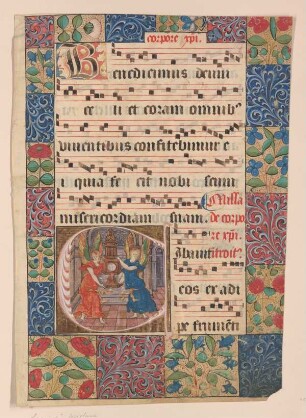 corpore xpi.
Benedicimus deum
celi et coram omnibꝰ
viventibus confitebimur e
i quia fecit nobiscum
misericordiam suam.
Missa
de corpo
re xpi.
Cibavit
eos ex adi
pe frumen